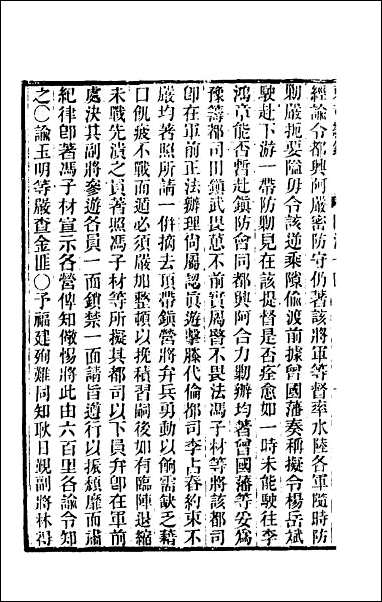 經諭令都興阿嚴密防守仍著該將軍等督率水陸各軍隨時防
剿嚴扼要隘毋令該逆乘隙偷渡前據曾國藩奏稱擬令楊岳斌
駛赴下游一帶防剿見在該提督是否痊愈如一時未能駛往李
鴻章能否暫赴鎮防會同都興阿合力剿辦均著曾國藩等妥為
豫籌都司田鎮武畏葸不前實屬罾不畏法馮子材等將該都司
卽在軍前正法辦理尙屬認眞遊擊滕代倫都司李占春約束不
嚴均著照所請一倂摘去頂帶鎮營將弁兵勇動以餉需缺乏藉
口飢疲不戰而遁必須嚴加整頓以挽積習嗣後如有臨陣退縮
未戰先潰之員著照馮子材等所擬其都司以下員弁卽在軍前
處決其副將參遊各員一面鎖禁一面請旨遵行以振頹靡而肅
紀律卽著馮子材宣示各營俾知儆惕將此由六百里各諭令知
之〇諭玉明等嚴查金匪〇予福建殉難同知耿日親副將林得